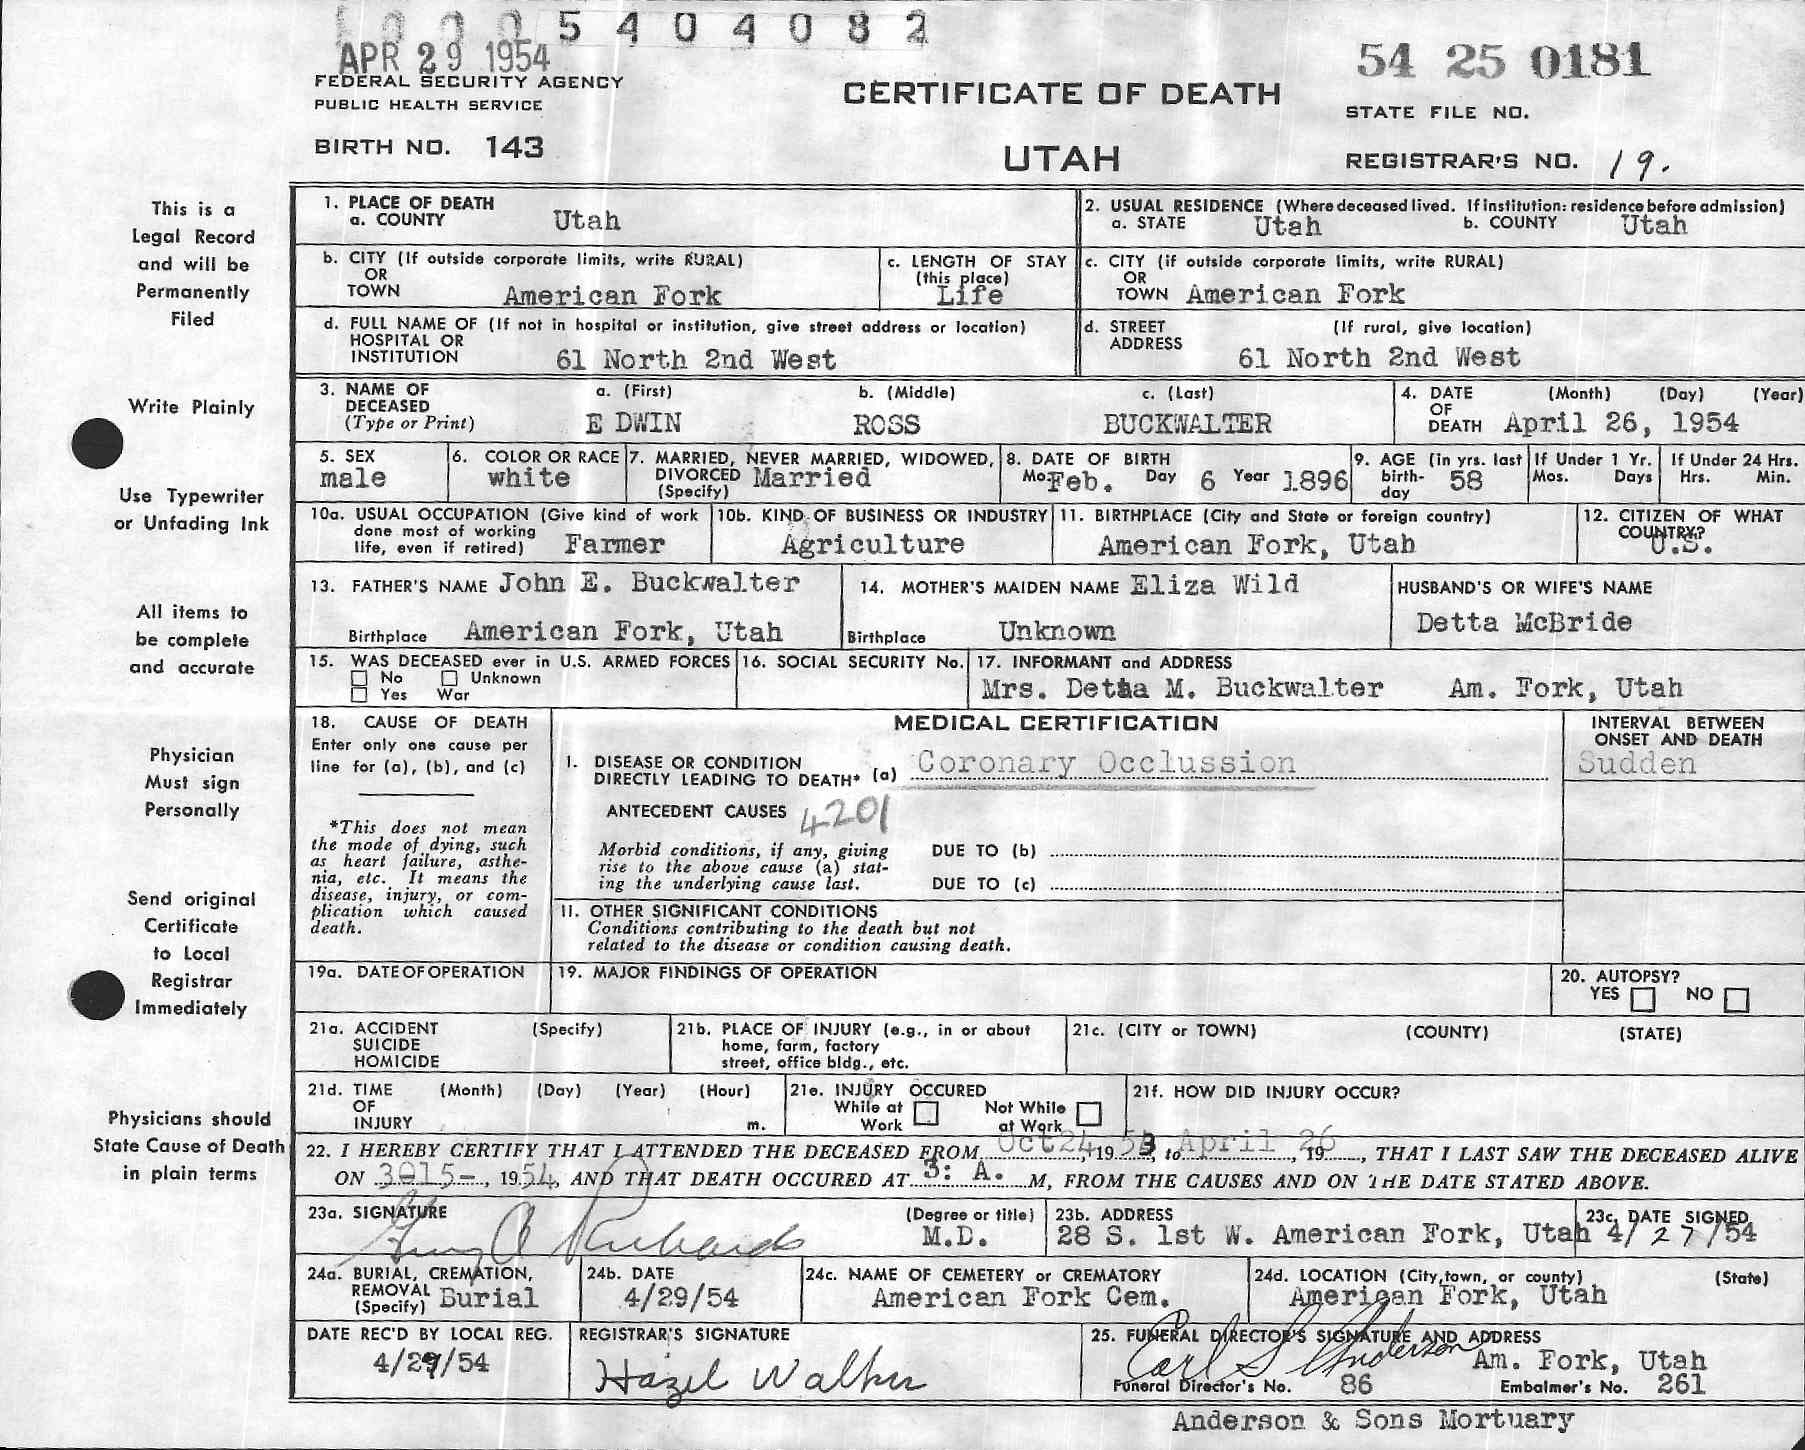 0 0 0 5 4 0 4 0 8 2
APR 29 1954
FEDERAL SECURITY AGENCY
PUBLIC HEALTH SERVICE
BIRTH NO. 143
CERTIFICATE OF DEATH
UTAH
54 25 0181
STATE FILE NO.
REGISTRAR'S NO. 19.
This is a
Legal Record
and will be
Permanently
Filed
Write Plainly
Use Typewriter
or Unfading Ink
All items to
be complete
and accurate
Physician
Must sign
Personally
Send original
Certificate
to Local
Registrar
Immediately
Physicians should
State Cause of Death
in plain terms
1. PLACE OF DEATH
a. COUNTY Utah
2. USUAL RESIDENCE (Where deceased lived. If institution: residence before admission)
a. STATE Utah b. COUNTY Utah
b. CITY (If outside corporate limits, write RURAL)
OR
TOWN American Fork
c. LENGTH OF STAY
(this place)
Life
c. CITY (if outside corporate limits, write RURAL)
OR
TOWN American Fork
d. FULL NAME OF (If not in hospital or institution, give street address or location)
HOSPITAL OR
INSTITUTION 61 North 2nd West
d. STREET (If rural, give location)
ADDRESS
61 North 2nd West
3. NAME OF DECEASED (Type or Print)
a. (First) b. (Middle) c. (Last)
E DWIN ROSS BUCKWALTER
4. DATE (Month) (Day) (Year)
OF
DEATH April 26, 1954
5. SEX
male
6. COLOR OR RACE
white
7. MARRIED, NEVER MARRIED, WIDOWED,
DIVORCED Married
(Specify)
8. DATE OF BIRTH
Mo Feb. Day 6 Year 1896
9. AGE (in yrs. last
birth-
day 58
If Under 1 Yr.
Mos. Days
If Under 24 Hrs.
Hrs. Min.
10a. USUAL OCCUPATION (Give kind of work
done most of working
life, even if retired) Farmer
10b. KIND OF BUSINESS OR INDUSTRY
Agriculture
11. BIRTHPLACE (City and State or foreign country)
American Fork, Utah
12. CITIZEN OF WHAT
COUNTRY?
U.S.
13. FATHER'S NAME John E. Buckwalter
Birthplace American Fork, Utah
14. MOTHER'S MAIDEN NAME Eliza Wild
Birthplace Unknown
HUSBAND'S OR WIFE'S NAME
Detta McBride
15. WAS DECEASED ever in U.S. ARMED FORCES
No Unknown
Yes War
16. SOCIAL SECURITY No.
17. INFORMANT and ADDRESS
Mrs. Detta M. Buckwalter Am. Fork, Utah
18. CAUSE OF DEATH
Enter only one cause per
line for (a), (b), and (c)
*This does not mean
the mode of dying, such
as heart failure, asthe-
nia, etc. It means the
disease, injury, or com-
plication which caused
death.
MEDICAL CERTIFICATION
INTERVAL BETWEEN
ONSET AND DEATH
I. DISEASE OR CONDITION
DIRECTLY LEADING TO DEATH* (a) Coronary Occlussion
Sudden
ANTECEDENT CAUSES 4201
Morbid conditions, if any, giving
rise to the above cause (a) stat-
ing the underlying cause last.
DUE TO (b)
DUE TO (c)
II. OTHER SIGNIFICANT CONDITIONS
Conditions contributing to the death but not
related to the disease or condition causing death.
19a. DATE OF OPERATION
19. MAJOR FINDINGS OF OPERATION
20. AUTOPSY?
YES NO
21a. ACCIDENT (Specify)
SUICIDE
HOMICIDE
21b. PLACE OF INJURY (e.g., in or about
home, farm, factory
street, office bldg., etc.
21c. (CITY or TOWN) (COUNTY) (STATE)
21d. TIME (Month) (Day) (Year) (Hour)
OF
INJURY m.
21e. INJURY OCCURED
While at Work
Not While at Work
21f. HOW DID INJURY OCCUR?
22. I HEREBY CERTIFY THAT I ATTENDED THE DECEASED FROM Oct 24, 1953, to April 26, 19 , THAT I LAST SAW THE DECEASED ALIVE
ON 3015-, 1954, AND THAT DEATH OCCURED AT 3: A. M, FROM THE CAUSES AND ON THE DATE STATED ABOVE.
23a. SIGNATURE (Degree or title)
Guy A Richards M.D.
23b. ADDRESS
28 S. 1st W. American Fork, Utah
23c. DATE SIGNED
4/27/54
24a. BURIAL, CREMATION,
REMOVAL
(Specify) Burial
24b. DATE
4/29/54
24c. NAME OF CEMETERY or CREMATORY
American Fork Cem.
24d. LOCATION (City, town, or county) (State)
American Fork, Utah
DATE REC'D BY LOCAL REG.
4/29/54
REGISTRAR'S SIGNATURE
Hazel Walker
25. FUNERAL DIRECTOR'S SIGNATURE AND ADDRESS
Carl S Anderson Am. Fork, Utah
Funeral Director's No. 86 Embalmer's No. 261
Anderson & Sons Mortuary